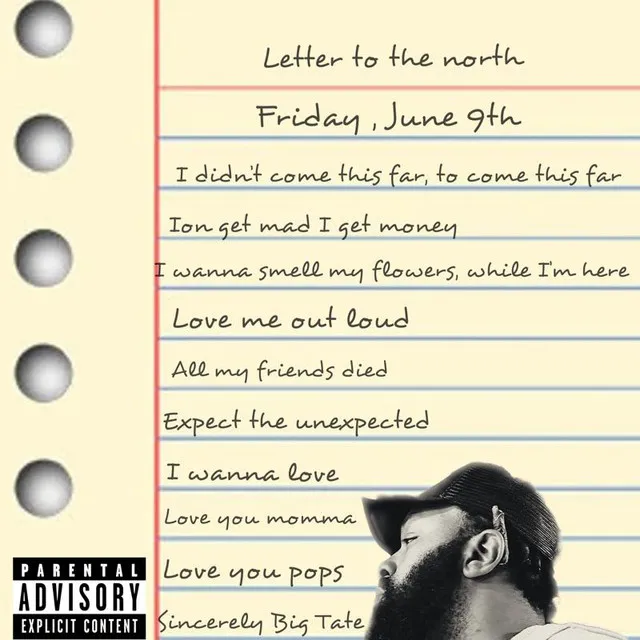 Letter to the north
Friday, June 9th
I didn't come this far, to come this far
Ion get mad I get money
I wanna smell my flowers, while I'm here
Love me out loud
All my friends died
Expect the unexpected
I wanna love
Love you momma
Love you pops
Sincerely Big Tate
PARENTAL
ADVISORY
EXPLICIT CONTENT